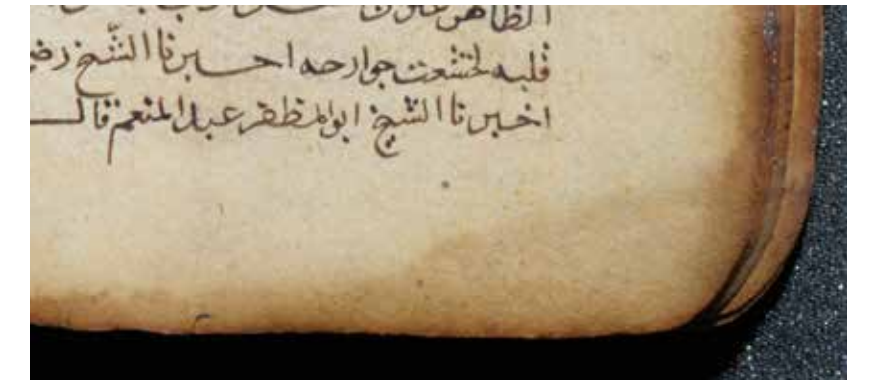 الظاهر عنوان
قلبه لخشعت جوارحه اخبرنا الشيخ رضي
اخبرنا الشيخ ابوالمظفر عبدالمنعم قال